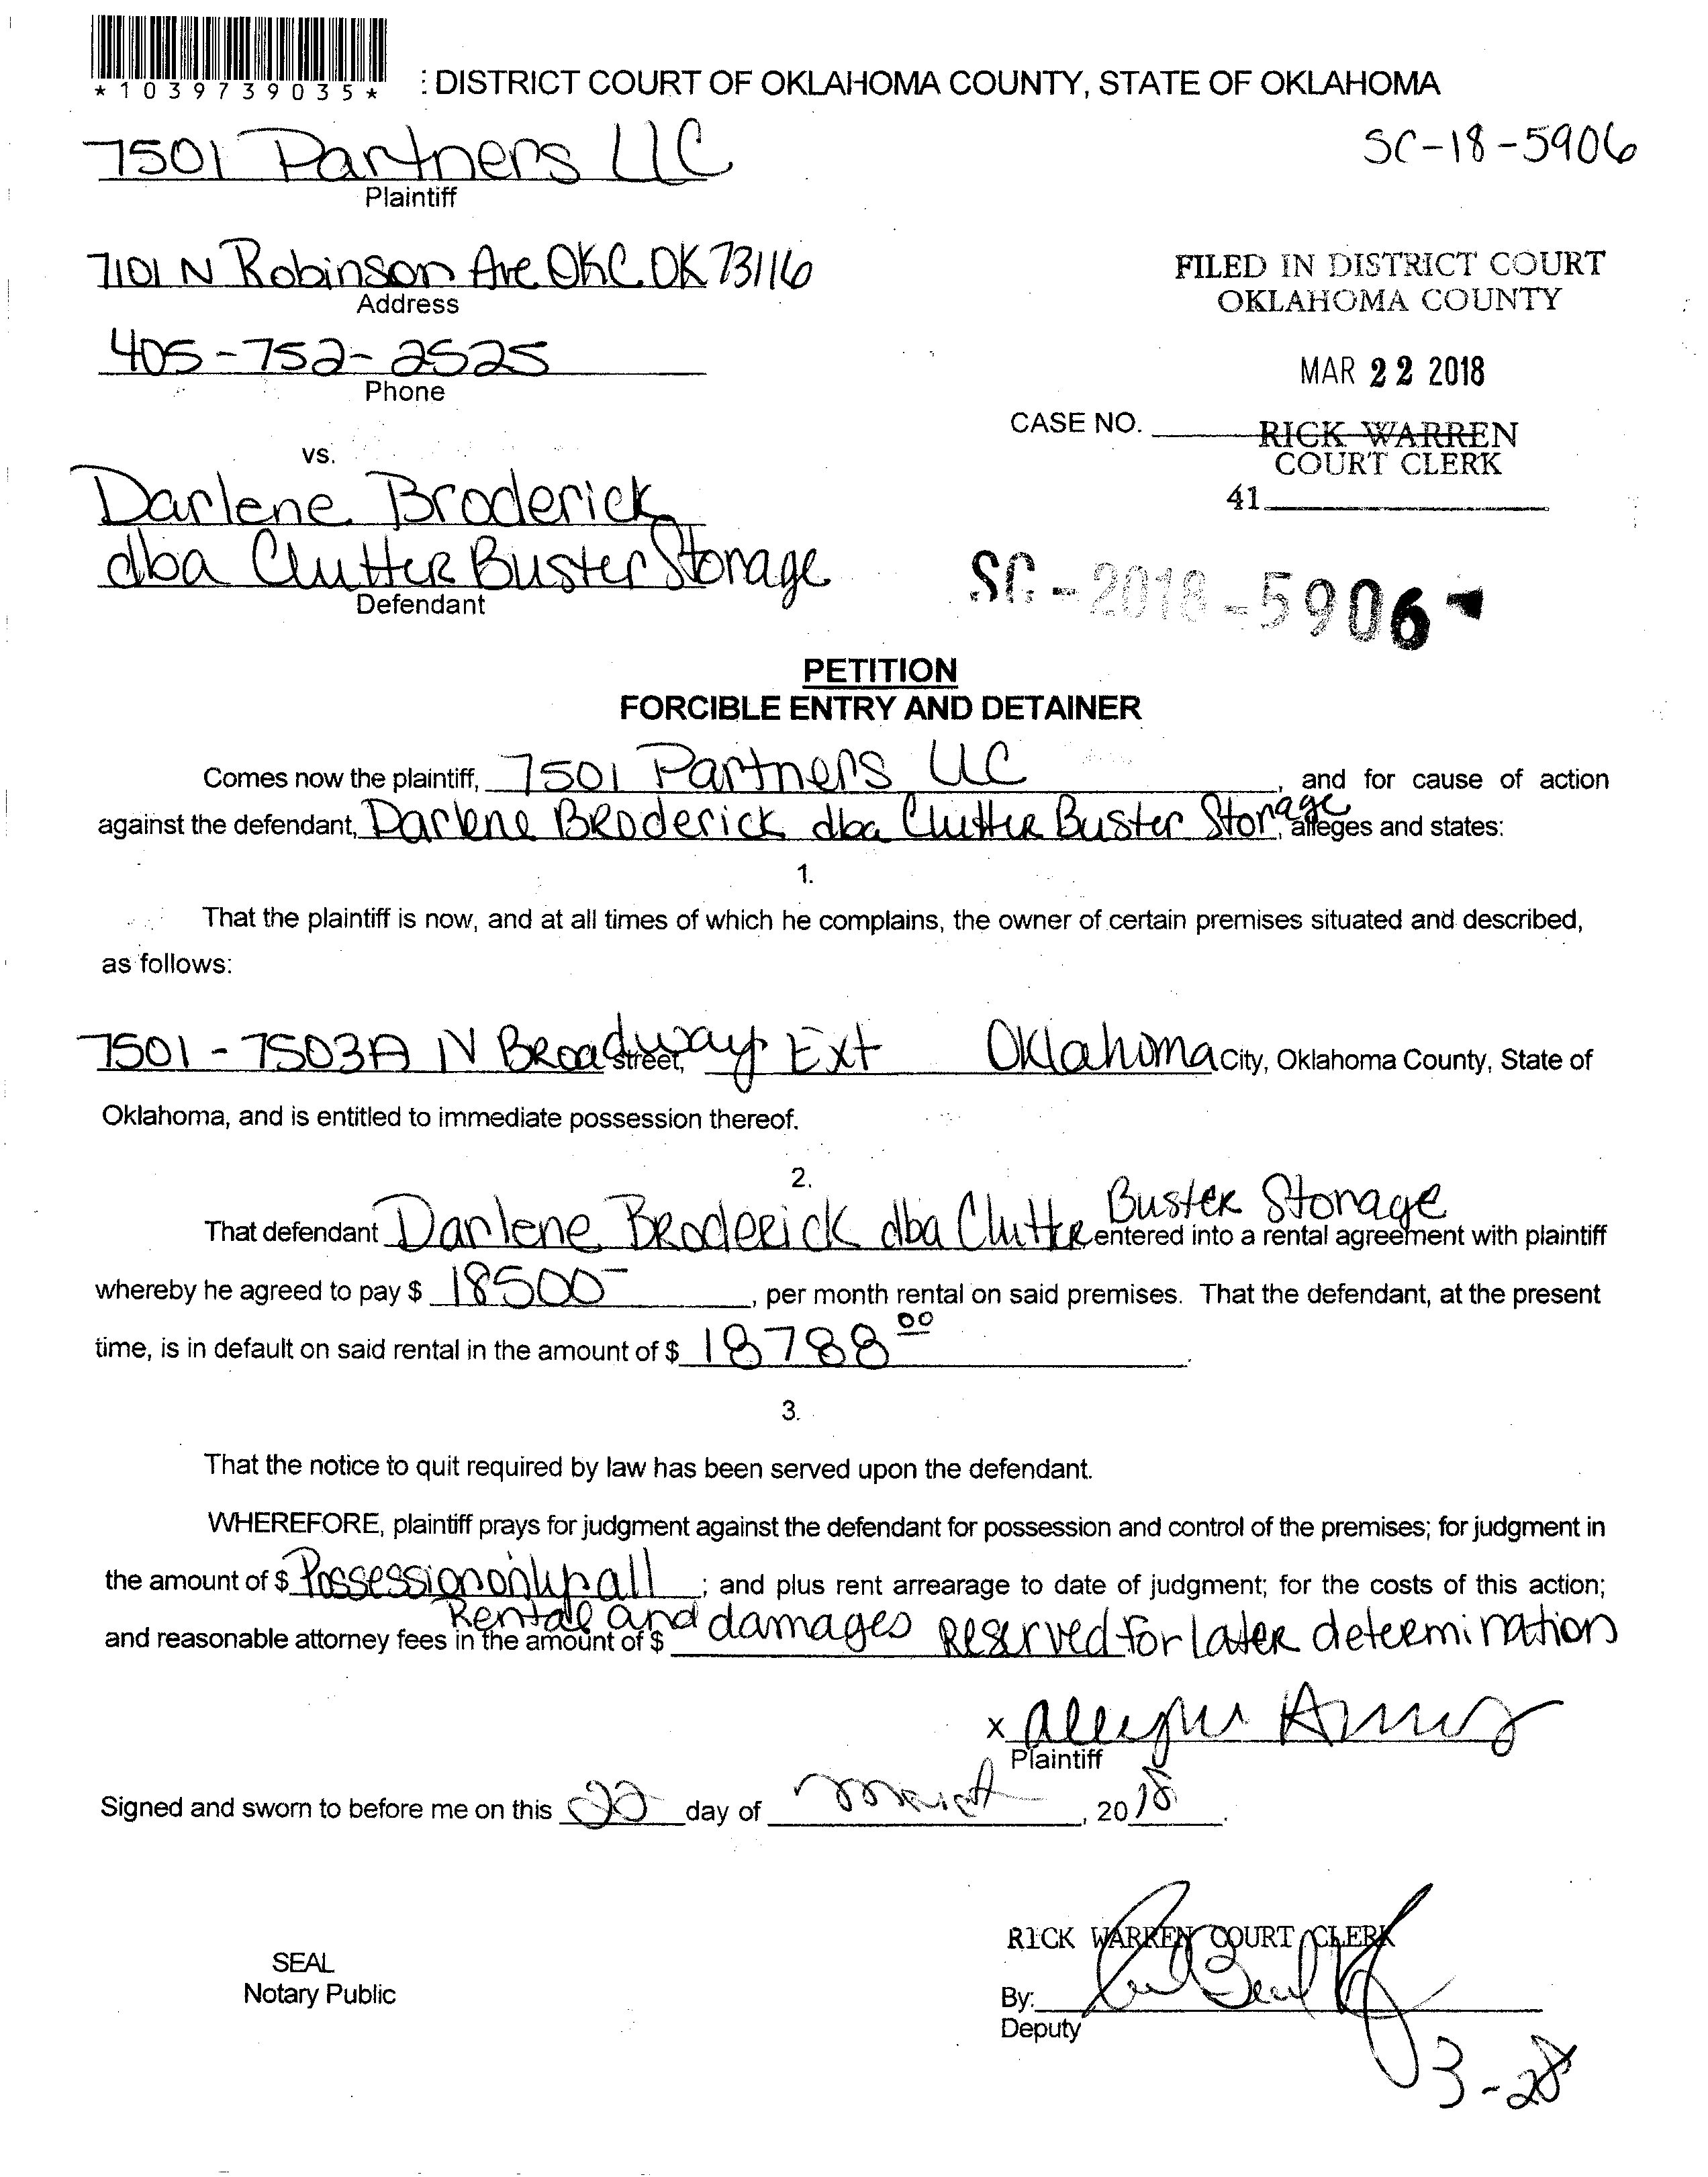 *1039739035*
: DISTRICT COURT OF OKLAHOMA COUNTY, STATE OF OKLAHOMA
7501 Partners LLC
SC-18-5906
Plaintiff
7101 N Robinson Ave OKC OK 73116
Address
FILED IN DISTRICT COURT
OKLAHOMA COUNTY
405-752-2525
Phone
MAR 22 2018
CASE NO.
RICK WARREN
COURT CLERK
41
vs.
Darlene Broderick
dba Clutter Buster Storage
Defendant
SC-2018-5906
PETITION
FORCIBLE ENTRY AND DETAINER
Comes now the plaintiff, 7501 Partners LLC, and for cause of action
against the defendant, Darlene Broderick dba Clutter Buster Storage, alleges and states:
1.
That the plaintiff is now, and at all times of which he complains, the owner of certain premises situated and described,
as follows:
7501-7503A N Broadway Ext street, Oklahoma City, Oklahoma County, State of
Oklahoma, and is entitled to immediate possession thereof.
2.
That defendant Darlene Broderick dba Clutter Buster Storage entered into a rental agreement with plaintiff
whereby he agreed to pay $ 18500-, per month rental on said premises. That the defendant, at the present
time, is in default on said rental in the amount of $ 18788 00.
3.
That the notice to quit required by law has been served upon the defendant.
WHEREFORE, plaintiff prays for judgment against the defendant for possession and control of the premises; for judgment in
the amount of $ Possession only all; and plus rent arrearage to date of judgment; for the costs of this action;
Rental and damages Reserved for later determination
and reasonable attorney fees in the amount of $
x
Plaintiff
Signed and sworn to before me on this 22 day of March, 2018.
RICK WARREN COURT CLERK
SEAL
Notary Public
By:
Deputy
3-28